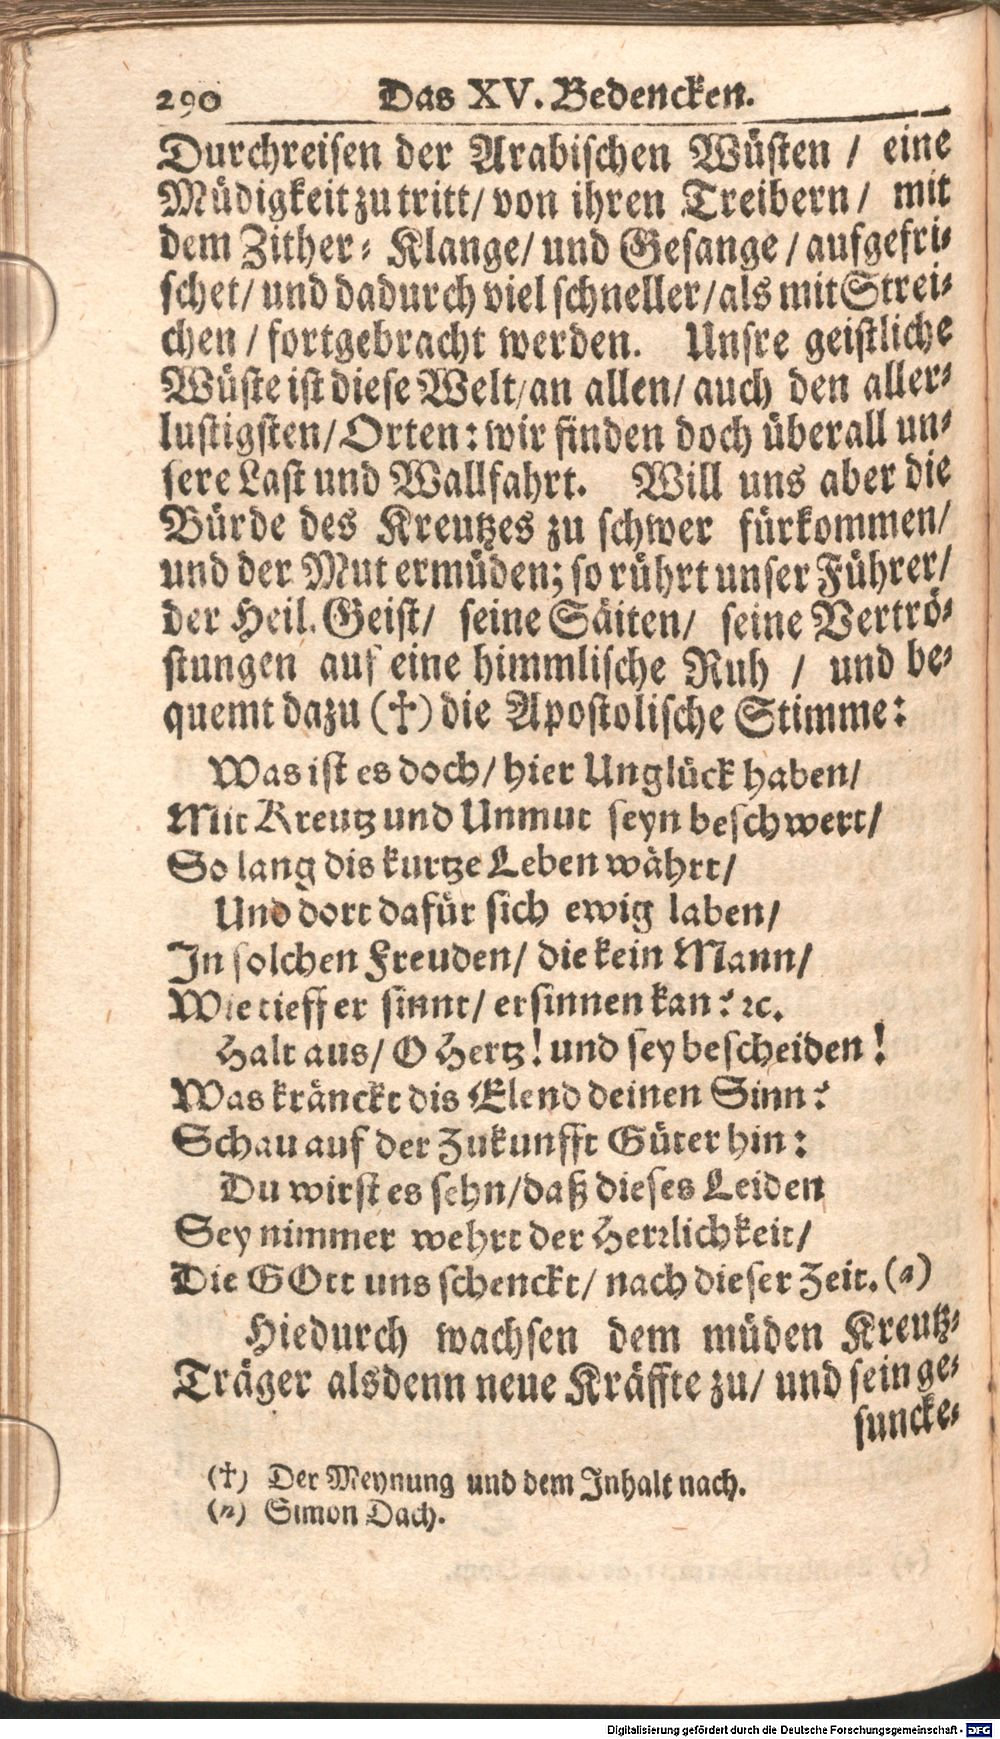 290 Das XV. Bedencken.
Durchreisen der Arabischen Wüsten / eine
Müdigkeit zu tritt/ von ihren Treibern/ mit
dem Zither- Klange/ und Gesange / aufgefri-
schet/ und dadurch viel schneller/ als mit Strei-
chen / fortgebracht werden. Unsre geistliche
Wüste ist diese Welt/ an allen/ auch den aller-
lustigsten/ Orten: wir finden doch überall un-
sere Last und Wallfahrt. Will uns aber die
Bürde des Kreutzes zu schwer fürkommen/
und der Mut ermüden; so rührt unser Führer/
der Heil. Geist/ seine Säiten/ seine Vertrö-
stungen auf eine himmlische Ruh / und be-
quemt dazu (†) die Apostolische Stimme:
Was ist es doch/ hier Unglück haben/
Mit Kreutz und Unmut seyn beschwert/
So lang dis kurtze Leben währt/
Und dort dafür sich ewig laben/
In solchen Freuden/ die kein Mann/
Wie tieff er sinnt/ ersinnen kan? ꝛc.
Halt aus/ O Hertz! und sey bescheiden!
Was kränckt dis Elend deinen Sinn?
Schau auf der Zukunfft Güter hin:
Du wirst es sehn/ daß dieses Leiden
Sey nimmer wehrt der Herrlichkeit/
Die GOtt uns schenckt/ nach dieser Zeit. (n)
Hiedurch wachsen dem müden Kreutz-
Träger alsdenn neue Kräffte zu/ und sein ge-
suncke-
(†) Der Meynung und dem Inhalt nach.
(n) Simon Dach.
Digitalisierung gefördert durch die Deutsche Forschungsgemeinschaft - DFG